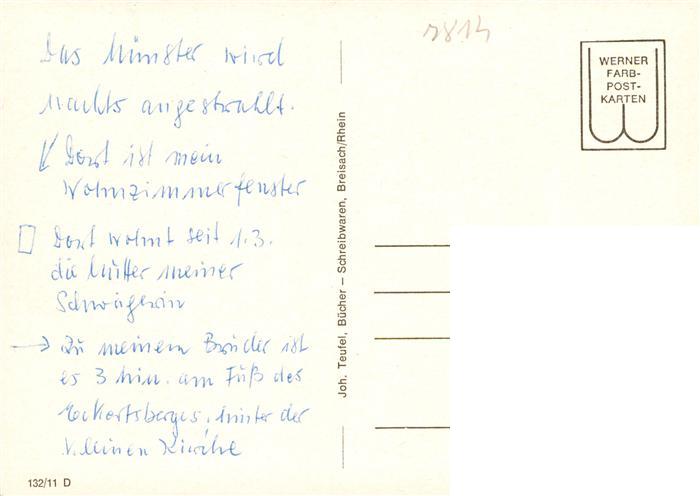 Das Münster wird
nachts angestrahlt.
↙ Dort ist mein
Wohnzimmerfenster
Dort wohnt seit 1.3.
die Mutter meiner
Schwägerin
→ Zu meinem Bruder ist
es 3 Min. am Fuß des
Eckartsberges, hinter der
kleinen Kirche
132/11 D
Joh. Teufel, Bücher – Schreibwaren, Breisach/Rhein
7814
WERNER
FARB-
POST-
KARTEN